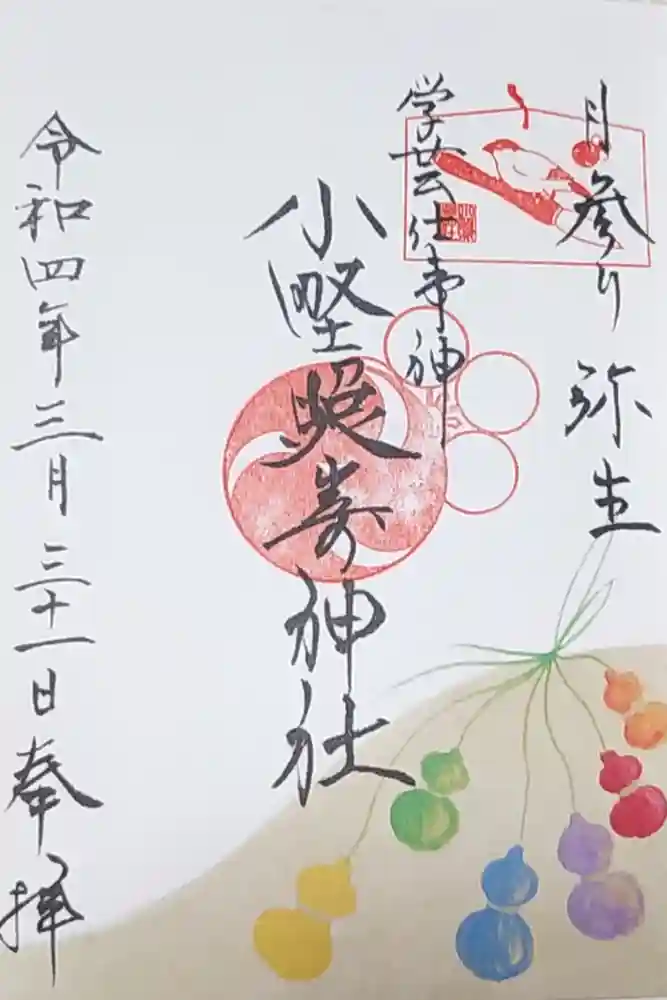 月参り 弥生
学芸仕事神
小野照崎神社
令和四年三月三十一日奉拝